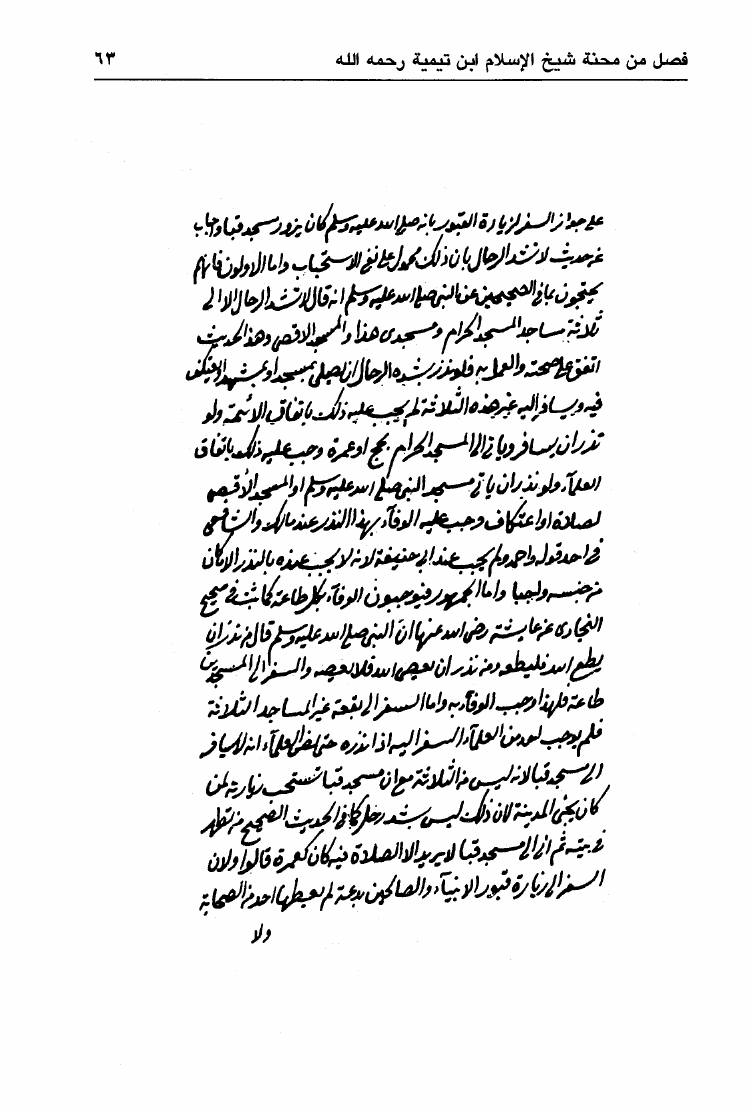 فصل من محنة شيخ الإسلام ابن تيمية رحمه الله
٦٣
على جواز السفر لزيارة القبور بانه صلى الله عليه وسلم كان يزور مسجد قبا واجاب
عن حديث لا تشد الرحال بان ذلك محمول على نفي الاستحباب واما الاولون فانهم
يحتجون بما في الصحيحين عن النبي صلى الله عليه وسلم انه قال لا تشد الرحال الا الى
ثلاثة مساجد المسجد الحرام ومسجدى هذا والمسجد الاقصى وهذا الحديث
اتفق على صحته والعمل به فلو نذر بشده الرحال ان يصلي بمسجد او بمشهد او يعتكف
فيه ويسافر إليه غير هذه الثلاثة لم يجب عليه ذلك باتفاق الائمة ولو
نذر ان يسافر وياتي الى المسجد الحرام بحج او عمرة وجب عليه ذلك باتفاق
العلمآء ولو نذر ان ياتي مسجد النبي صلى الله عليه وسلم او المسجد الأقصى
لصلاة او اعتكاف وجب عليه الوفآء بهذا النذر عند مالك والشافعي
في احد قوليه واحمد ولم يجب عند ابي حنيفة لانه لا يجب عنده بالنذر الا ما كان
من جنسه واجبا واما الجمهور فيوجبون الوفآء بكل طاعة كما ثبت في صحيح
البخارى عن عايشة رضى الله عنها ان النبي صلى الله عليه وسلم قال من نذر ان
يطع الله فليطعه ومن نذر ان يعصى الله فلا يعصه والسفر الى المسجدين
طاعة فلهذا وجب الوفآء به واما السفر الى بقعة غير المساجد الثلاثة
فلم يوجب احد من العلمآء السفر اليه اذا نذره حتى نص العلمآء انه لا يسافر
الى مسجد قبا لانه ليس من الثلاثة مع ان مسجد قبا تستحب زيارته لمن
كان بالمدينة لان ذلك ليس بشد رحل كما في الحديث الصحيح من تطهر
في بيته ثم اتى الى مسجد قبا لا يريد الا الصلاة فيه كان كعمرة قالوا ولان
السفر الى زيارة قبور الانبيآء والصالحين بدعة لم يفعلها احد من الصحابة
ولا